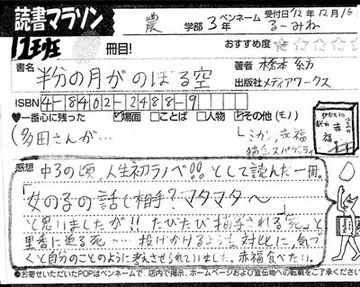 読書マラソン
農 学部 3年
ペンネーム るーみね
受付日'12年12月16
1冊目!
おすすめ度
書名 半分の月がのぼる空
著者 橋本 紡
出版社 メディアワークス
ISBN 4-8402-2488-9
♥一番心に残った □場面 □ことば □人物 □その他(モノ)
(多田さんが… 「みかん、赤福
赤福
感想 中3の頃、人生初ラノベ!!として読んだ一冊。
「女の子の話し相手?マタマタ〜
と思いましたが!!たびたび描写される「死」と
里香に迫る死…投げかけるような対比に、気づ
くと自分のことのように考えさせられいました。赤福食べたい。
●お寄せいただいたPOPはペンネームで、店内で掲示、ホームページおよび宣伝物への転載をご了承ください